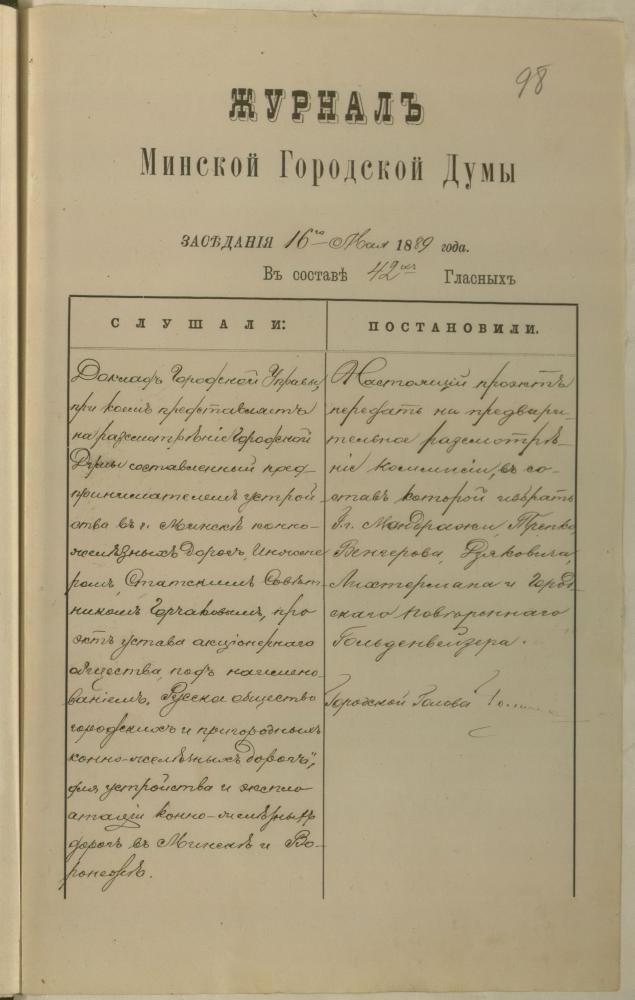 98
ЖУРНАЛЪ
Минской Городской Думы
ЗАСѢДАНІЯ 16го Мая 1889 года.
Въ составѣ 42хъ Гласныхъ
СЛУШАЛИ:
Докладъ Городской Управы,
при коемъ представляетъ
на разсмотрѣніе Городской
Думы составленный пред-
принимателемъ устрой
ства въ г. Минскѣ конно-
желѣзныхъ дорогъ, Инжене
ромъ, Статскимъ Совѣт
никомъ Горчаковымъ, про
эктъ устава акціонернаго
общества, подъ наимено-
ваніемъ „Русское общество
городскихъ и пригородныхъ
конно-желѣзныхъ дорогъ",
для устройства и эксплоа
атаціи конно-желѣзныхъ
дорогъ въ Минскѣ и Во-
ронежѣ.
ПОСТАНОВИЛИ.
Настоящій проэктъ
передать на предвари-
тельное разсмотрѣ-
ніе коммисіи, въ со-
ставъ которой избрать
Гг. Мандражи,
Венгерова, Дяковича,
Лихтермана и Город
скаго
Гольденвейзера.
Городской Голова